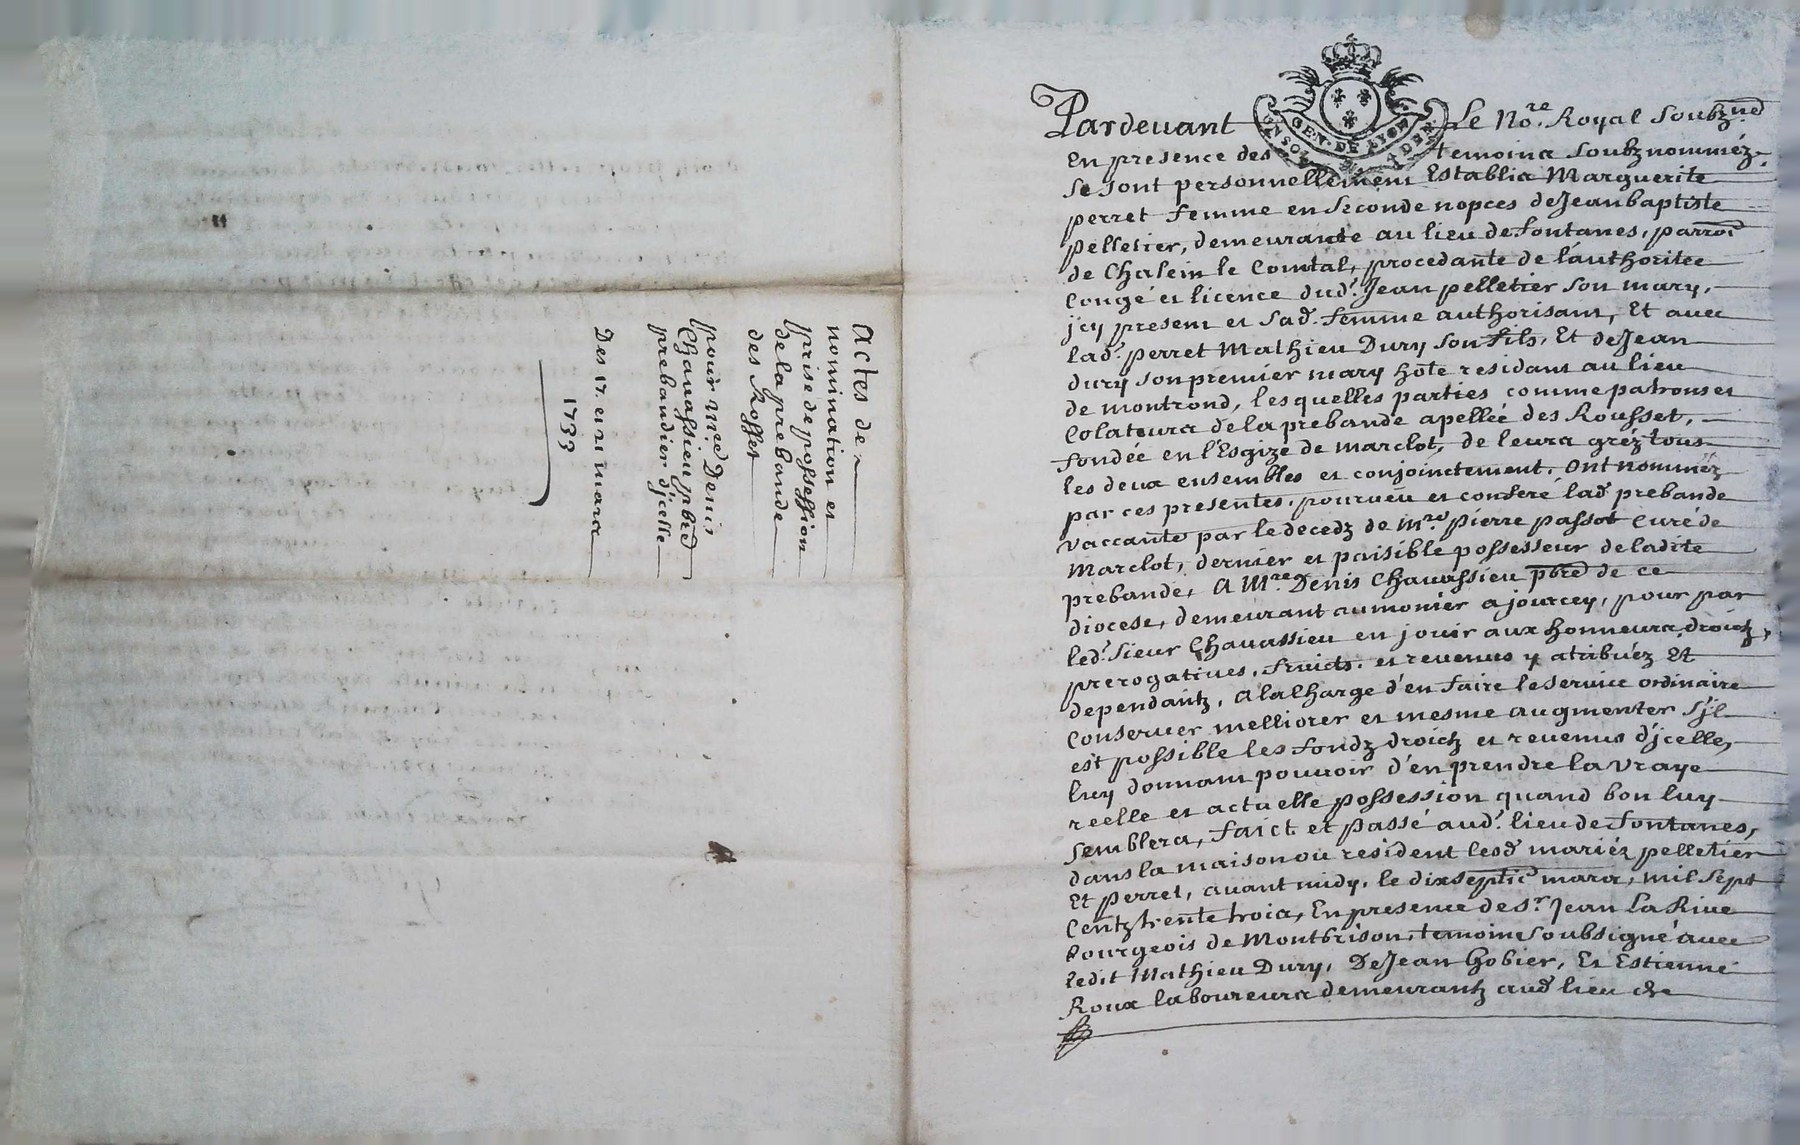 Actes de
nomination et
prise de possession
de la prebande
des Rosset
pour M.re Denis
Chavassieu pbre
prebandier d'jcelle
Des 17. et 21 mars
1733
GEN. DE LYON
Pardevant Le No.re Royal Soubzné
En presence des temoins soubznommez,
se sont personnellement Establis Marguerite
perret femme en seconde nopces de Jean baptiste
pelletier, demeurante au lieu de fontanes, parroi
de Chalein le Comtal, procedante de l'authoritee
Congé et licence dud. Jean pelletier son mary,
jcy present et sad. femme authorisant, Et avec
lad. perret Mathieu Dury son fils, Et de Jean
dury son premier mary hote residant au lieu
de montrond, lesquelles parties comme patrons et
Colateurs de la prebande apellée des Rousset,
fondée en l'Esgize de marclot, de leurs gréz tous
les deux ensembles et conjoinctement, ont nomméz
par ces presentes, pourveu et conferé lad prebande
vaccante par le decedz de M.re pierre passot Curé de
Marclot, dernier et paisible possesseur de ladite
prebande, A M.re Denis Chavassieu pbre de ce
diocese, demeurant aumonier a jourcey, pour par
led. Sieur Chavassieu en jouir aux honneurs, droictz,
prerogatives, fruicts, et revenus y atribuéz Et
dependantz, a la Charge d'en faire le service ordinaire
Conserver melliorer et mesme augmenter s'jl
est possible les fondz droictz et revenus d'jcelle,
luy donnant pouvoir d'en prendre la vraye
reelle et actuelle possession quand bon luy
semblera, faict et passé aud. lieu de fontanes,
dans la maison ou resident lesd mariéz pelletier
Et perret, avant midy, le dixseptie mars, mil sept
Centz trente trois, En presence de s.r Jean La Rive
bourgeois de Montbrison, temoin soubsigné avec
ledit Mathieu Dury, De Jean Gobier, Et Estienne
Roux laboureurs demeurantz aud lieu de